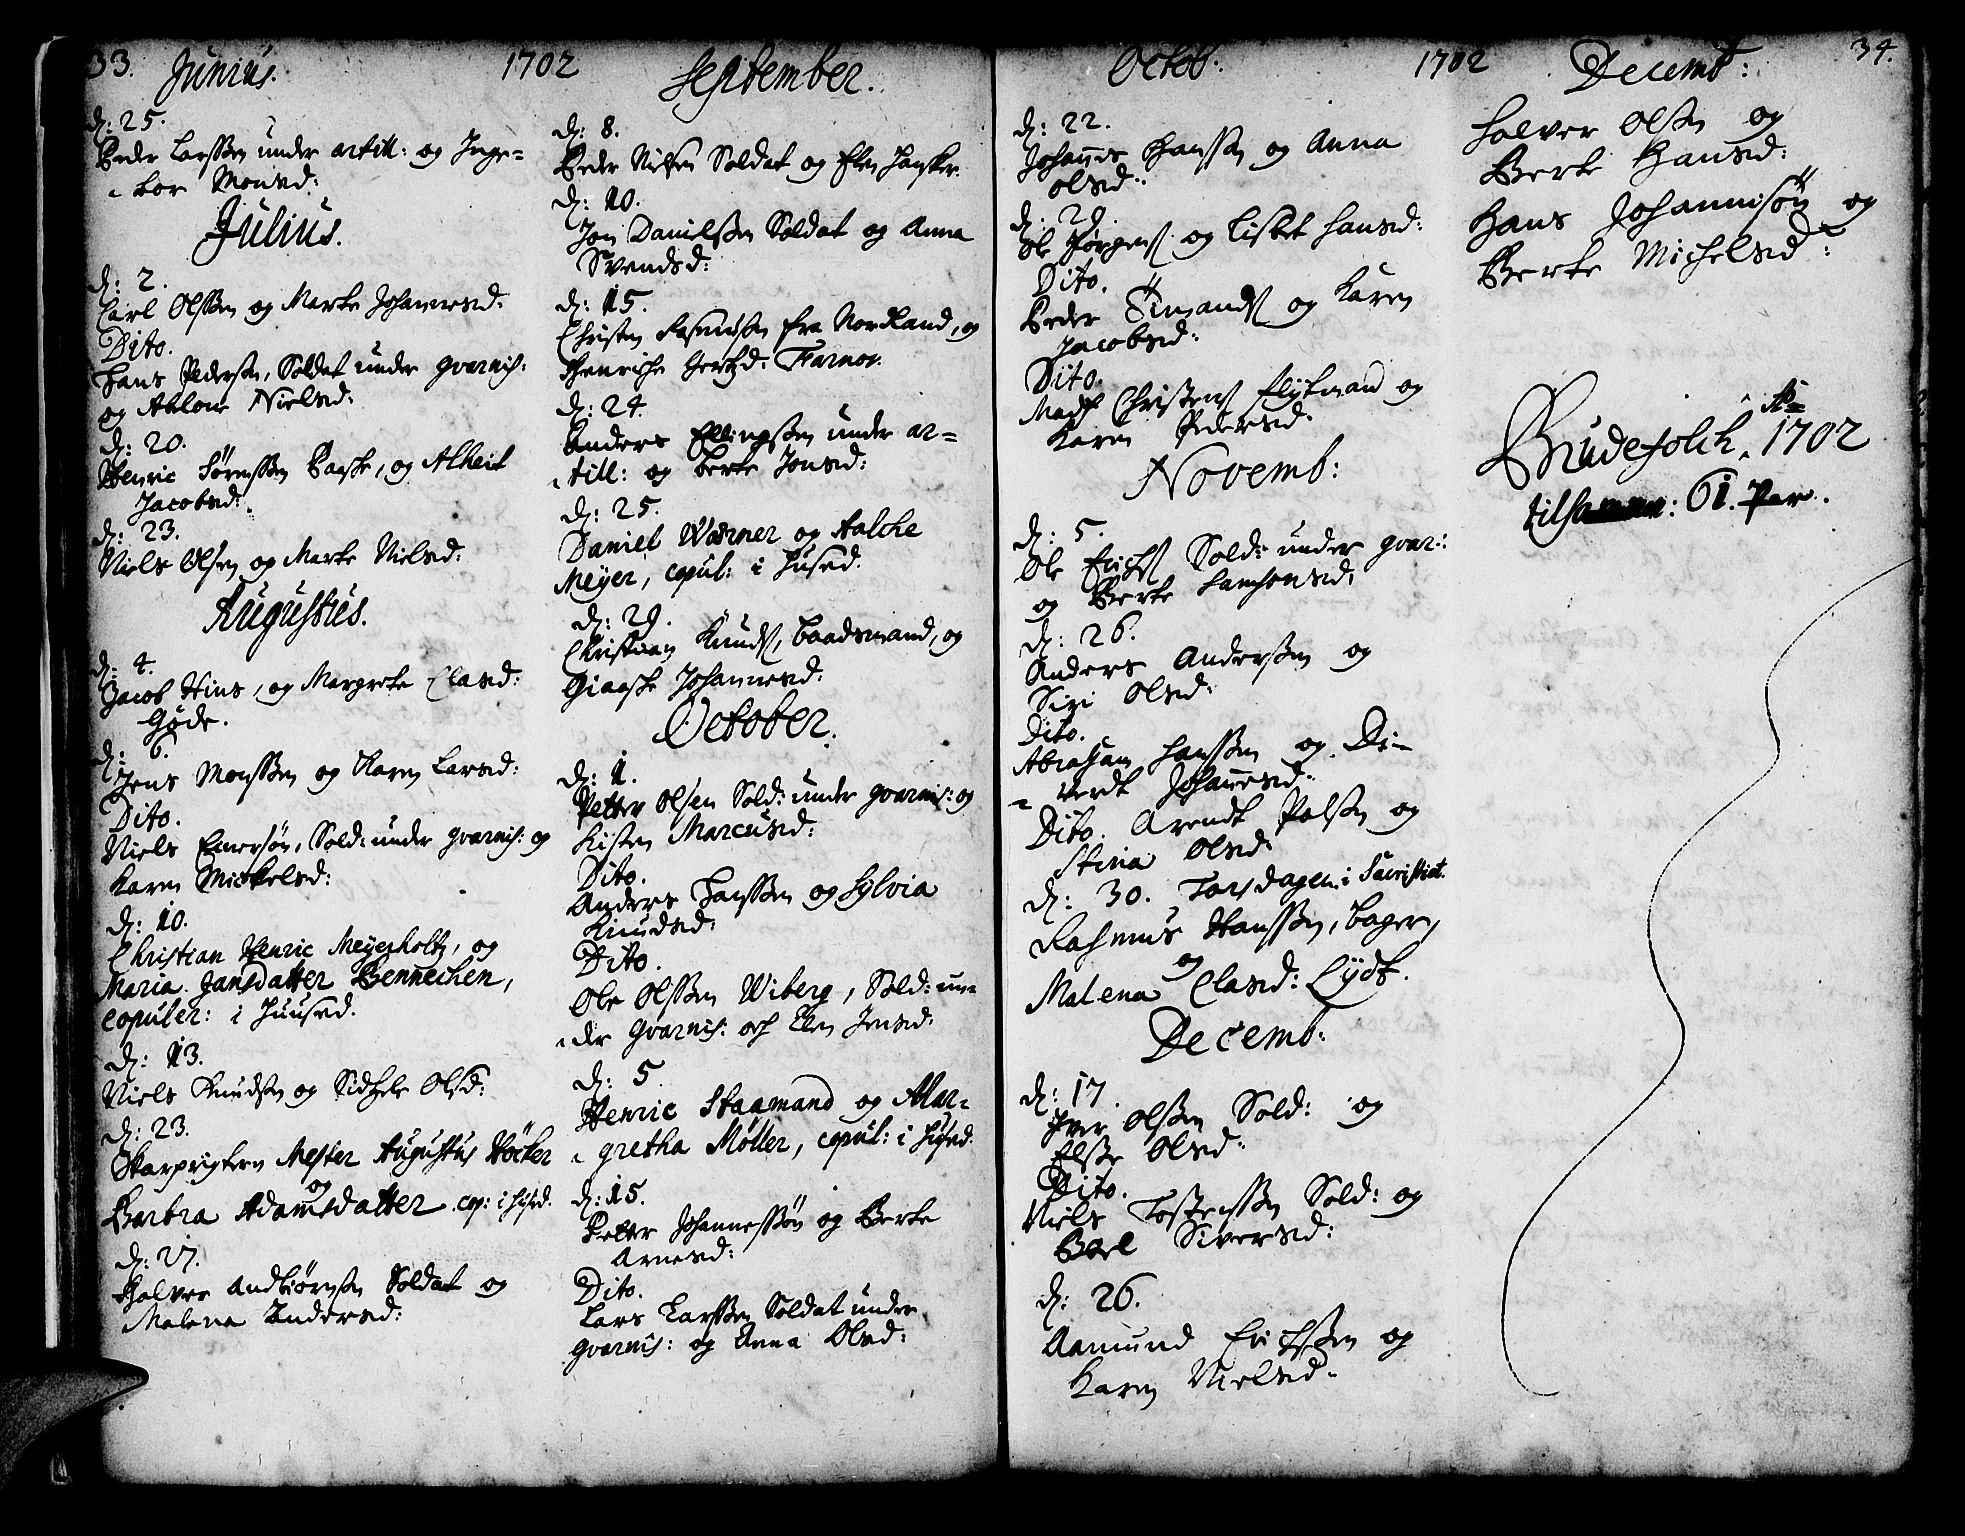 33. Junius. 1702
d: 25.
Peder Larssen under artill: og Inge=
bor Monsd:
Julius.
d: 2.
Carl Olssen og Marte Johannesd:
Dito.
Hans Pedersen, Soldat under gvarnis:
og Ablone Nielsd:
d: 20.
Henric Sørenssen Paaske, og Alheit
Jacobsd:
d: 23.
Niels Olsen og Marte Nielsd:
Augustus.
d: 4.
Jacob Hins, og Margrete Clasd:
Gøde.
d: 6.
Jens Monssen og Karen Larsd:
Dito.
Niels Einersøn, Sold: under gvarnis: og
Karen Mickelsd:
d: 10.
Christian Henric Meyerholtz, og
Maria Jansdatter Bennechen,
copuler: i Huused.
d: 13.
Niels Knudsen og Sidsele Olsd:
d: 23.
Skarprigtern Mester Augustus Høcker
og
Barbra Adamsdatter cop: i Hused.
d: 27.
Halver Andbiørnsen Soldat og
Malena Andersd:
September.
d: 8.
Peder Nilsen Soldat og Elen
d: 10.
Jon Danielssen Soldat og Anna
Svendsd:
d: 15.
Christen Rasmussen fra Nordland, og
Henriche Farnov.
d: 24.
Anders Ellingssen under ar=
till: og Berte Jonsd:
d: 25.
Daniel Wærner og Aalche
Meyer, copul: i Hused.
d: 29.
Christian Knuds, Baadsmand, og
Giaaske Johannesd:
October.
d: 1.
Petter Olsen Sold: under gvarnis: og
Kisten Marcusd:
Dito.
Anders Hanssen og Sylvia
Knudsd:
Dito.
Ole Olssen Wiberg, Sold: un=
der Gvarnis: och Elen Jensd:
d: 5.
Henric Staamand og Mar=
gretha Møller, copul: i Hused.
d: 15.
Petter Johannessøn og Berte
Arnesd:
Dito.
Lars Larssen Soldat under
gvarnis: og Anna Olsd:
Octob: 1702
d: 22.
Johannes Hanssen og Anna
Olsd:
d. 29.
Ole Jørgens og Lisbet Hansd:
Dito.
Peder Simands og Karen
Jacobsd:
Dito.
Mads Christens Flytmand og
Karen Pedersd:
Novemb:
d: 5.
Ole Erichs Sold: under gvar:
og Berte Samsonsd:
d: 26.
Anders Anderssen og
Siri Olsd:
Dito.
Abraham Hanssen og De=
verdt Johannesd:
Dito. Arendt Polsen og
Stina Olsd:
d: 30. Torsdagen i Sacristiet.
Rasmus Hanssen, Bager,
og
Malena Clasd: Lydt.
Decemb:
d: 17.
Iver Olssen Sold: og
Else Olsd:
Dito.
Niels Tostenssen Sold: og
Boel Siversd:
d: 26.
Aamund Erichssen og
Karen Nielsd:
Decemb: 34.
Halver Olsen og
Berte Hansd:
Hans Johannisøn og
Berte Michelsd:
Brudefolch Ao 1702
tilsammen: 61. Par.